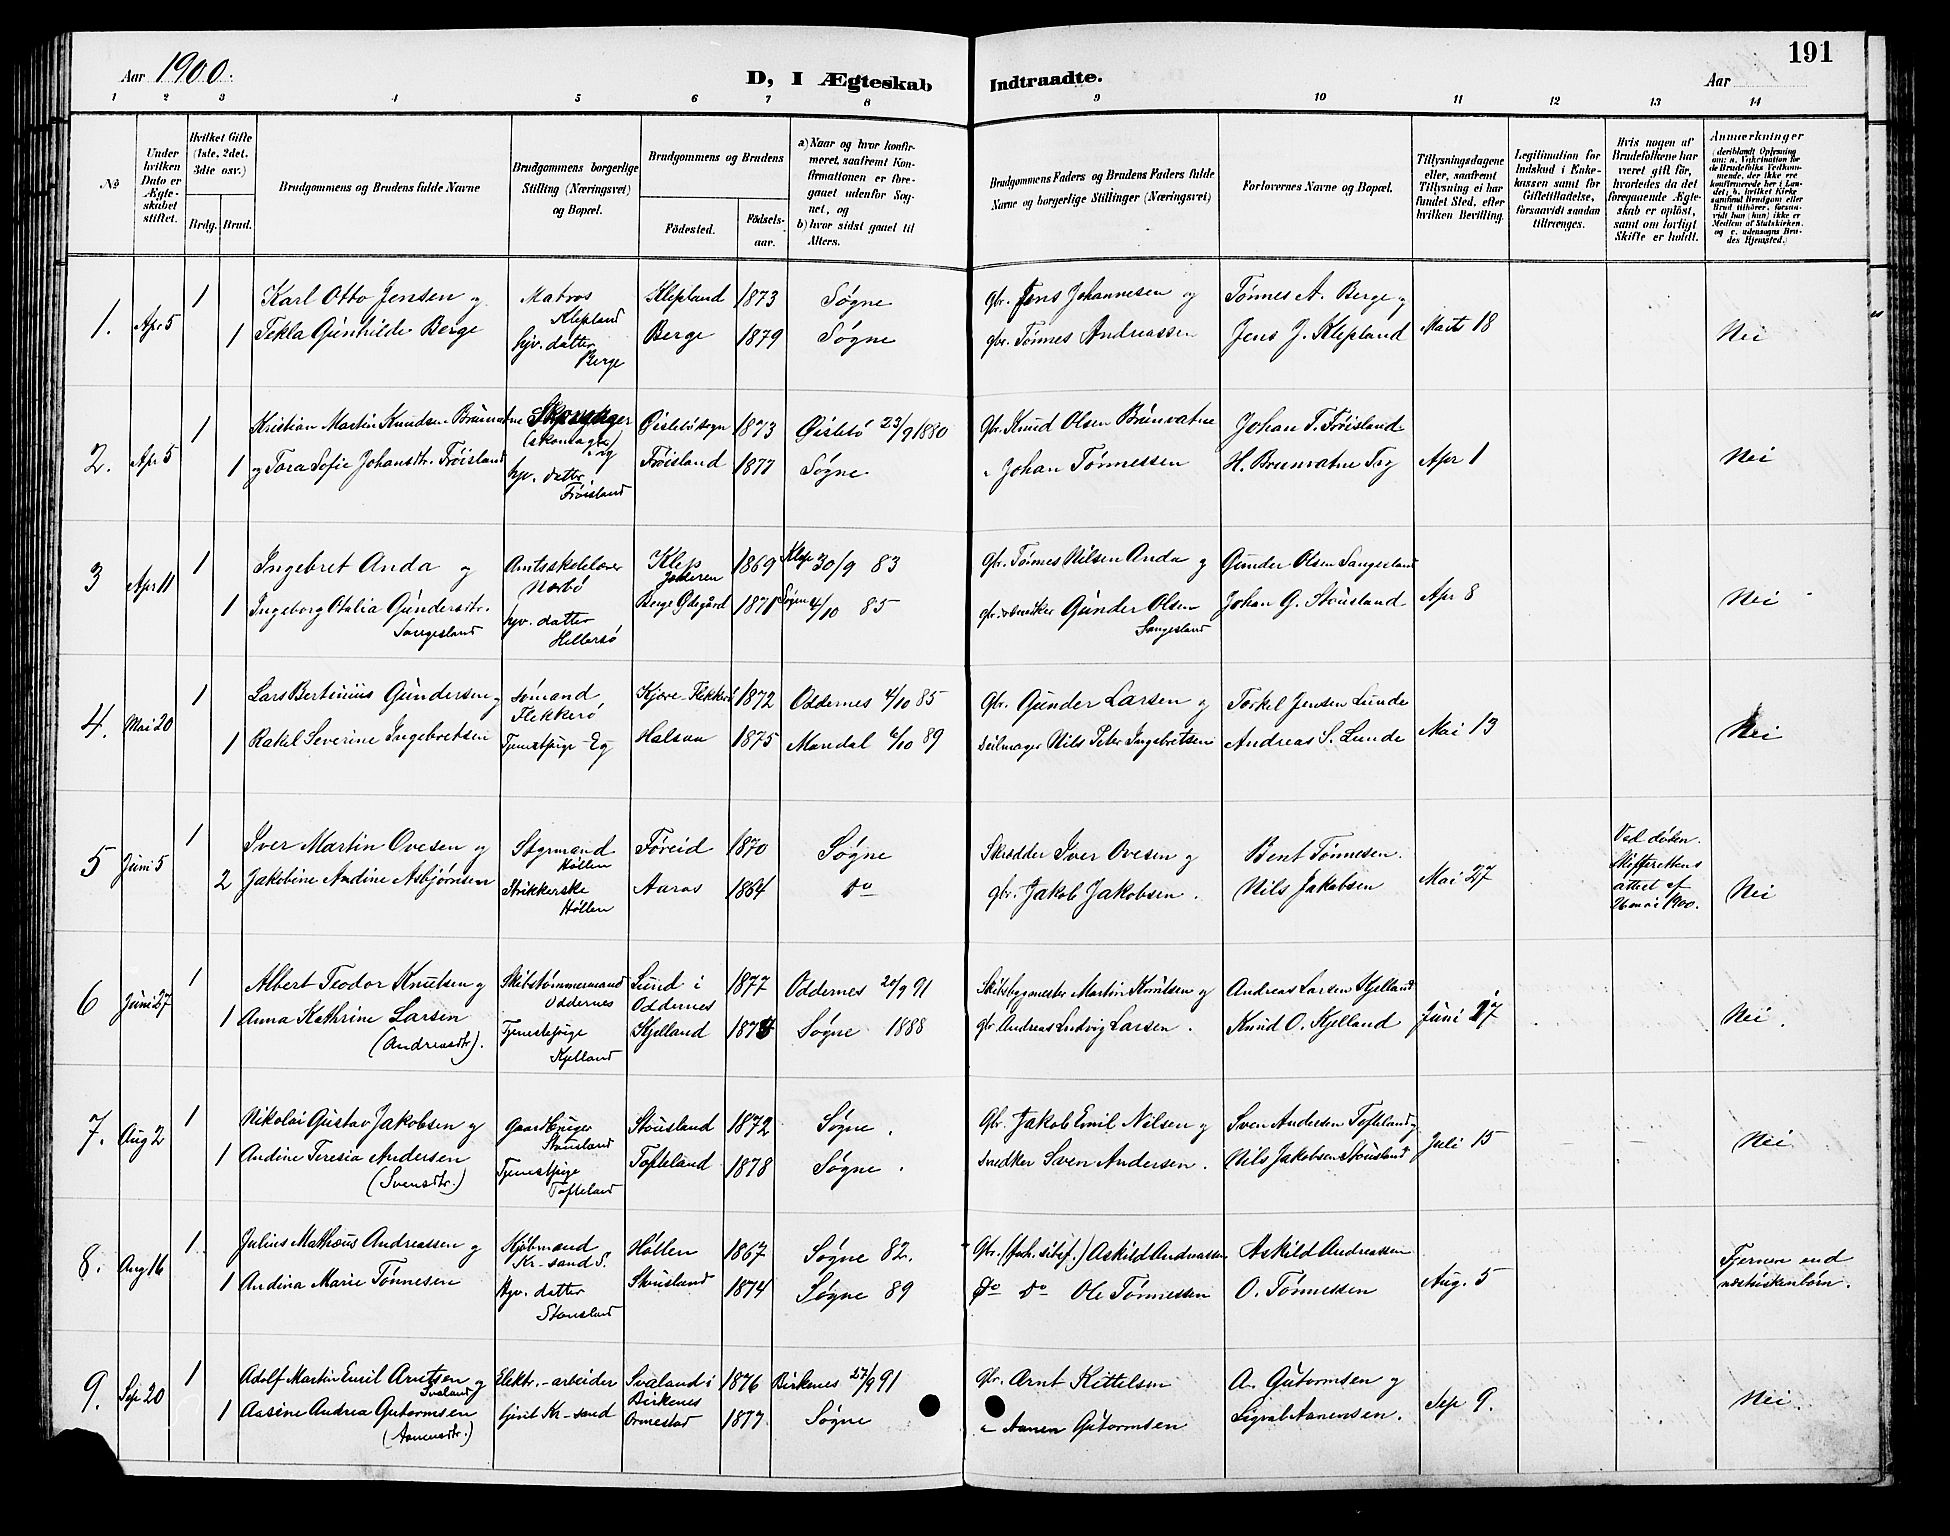 191
Aar 1900.
D, I Ægteskab Indtraadte.
Aar
1 2 3 4 5 6 7 8 9 10 11 12 13 14
No
Under hvilken Dato er Ægteskabet stiftet.
Hvilket Gifte (1ste, 2det, 3die osv.)
Brdg. Brud.
Brudgommens og Brudens fulde Navne
Brudgommens borgerlige Stilling (Næringsvei) og Bopæl.
Brudgommens og Brudens
Födested. Födselsaar.
a) Naar og hvor konfirmeret, saafremt Konfirmationen er foregaaet udenfor Sognet, og
b) hvor sidst gaaet til Alters.
Brudgommens Faders og Brudens Faders fulde Navne og borgerlige Stillinger (Næringsvei)
Forlovernes Navne og Bopæl.
Tillysningsdagene eller, saafremt Tillysning ei har fundet Sted, efter hvilken Bevilling.
Legitimation for Indskud i Enkekassen samt for Giftetilladelse, forsaavidt saadan tiltrænges.
Hvis nogen af Brudefolkene har været gift før, hvorledes da det foregaaende Ægteskab er opløst, samt om lovligt Skifte er holdt.
Anmærkninger (deriblandt Oplysning om: a. Vakcination for de Brudefolks Vedkommende, der ikke ere konfirmerede her i Landet; b. hvilket Kirkesamfund Brudgom eller Brud tilhører, forsaavidt han (hun) ikke er Medlem af Statskirken, og c. udensogns Brudes Hjemsted.)
1. Apr 5 1 Karl Otto Jensen og Matros Klepland Klepland 1873 Søgne gbr. Jens Johannesen og Tønnes A. Berge og Marts 18 Nei
1 Tekla Gunhilde Berge hjv. datter Berge Berge 1879 Søgne gbr. Tønnes Andreassen Jens J. Klepland
2. Apr 5 1 Kristian Martin Knudsen Brunvatne (skomager) Øislebø sogn 1873 Øislebø 23/9 1880 Gbr. Knud Olsen Brunvatne Johan T. Frøisland Apr 1 Nei
1 og Tora Sofie Johansdtr. Frøisland hjv. datter Frøisland Frøisland 1877 Søgne " Johan Tønnessen H. Brunvatne
3 Apr 11 1 Ingebret Anda og Amtsskolelærer Nærbø Klep Jæderen 1869 Klep 30/9 83 gbr. Tønnes Nilsen Anda og Gunder Olsen Langesland Apr 8 Nei
1 Ingeborg Otalia Gundersdtr. Langesland hjv. datter Hellersø Berge Ødegård 1871 Søgne 4/10 85 Gunder Olsen Langesland Johan G. Stousland
4. Mai 20 1 Lars Bertinius Gundersen og sømand Flekkerø Kjære-Flekkerø 1872 Oddernes 4/10 85 Gbr. Gunder Larsen og Torkel Jensen Lunde Mai 13 Nei
1 Rakel Severine Ingebretsen Tjenestpige-Eg Halsaa 1875 Mandal 6/10 89 Seilmager Nils Peter Ingebretsen Andreas S. Lunde
5 Juni 5 1 Iver Martin Ovesen og Styrmand Høllen Føreid 1870 Søgne Skrædder Iver Ovesen og Bent Tønnesen. Mai 27 Ved døden. Skifterettens attest af 26 mai 1900. Nei
2 Jakobine Andine Asbjørnsen Strikkerske Høllen Aaros 1864 do gbr. Jakob Jakobsen. Nils Jakobsen
6 Juni 27 1 Albert Teodor Knutsen og Skibstømmermand Oddernes Lund i Oddernes 1877 Oddernes 20/9 91 Skibsbygmester Martin Knutsen og Andreas Larsen Kjelland Juni 17 Nei.
1 Anna Kathrine Larsen (Andreasdtr). Tjenestepige Kjelland Kjelland Søgne 1888 gbr Andreas Ludvig Larsen. Knud O. Kjelland
7. Aug 2 1 Nikolai Gustav Jakobsen og Gaardbruger Stousland Stousland 1872 Søgne. Gbr. Jakob Emil Nilsen og Sven Andersen Tofteland og Juli 15 Nei
1 Andine Teresia Andersen (Svensdtr.) Tjenestpige Tofteland Tofteland 1878 Søgne. Snedker Sven Andersen. Nils Jakobsen Stousland
8. Aug 16 1 Julius Mathæus Andreassen og Kjøbmand Kr-sand S. Høllen 1867 Søgne 82. Gbr. Askild Andreassen Askild Andreassen Aug. 5 Fjernere end næstsøskenbörn.
1 Andina Marie Tønnesen Hjv. datter Stousland Stousland 1874 Søgne 89 Do Do Ole Tønnessen O. Tønnessen
9. Sep 20 1 Adolf Martin Emil Arntsen Svaland og Elektr.-arbeider Svaland i Birkenes 1876 Birkenes 27/9 91 Gbr. Arnt Kittelsen A. Gutormsen og Sep 9. Nei.
1 Aasine Andrea Gutormsen (Aanensdtr.) Kr-sand Ormestad 1877. Søgne " Aanen Gutormsen Sigvald Aanensen.